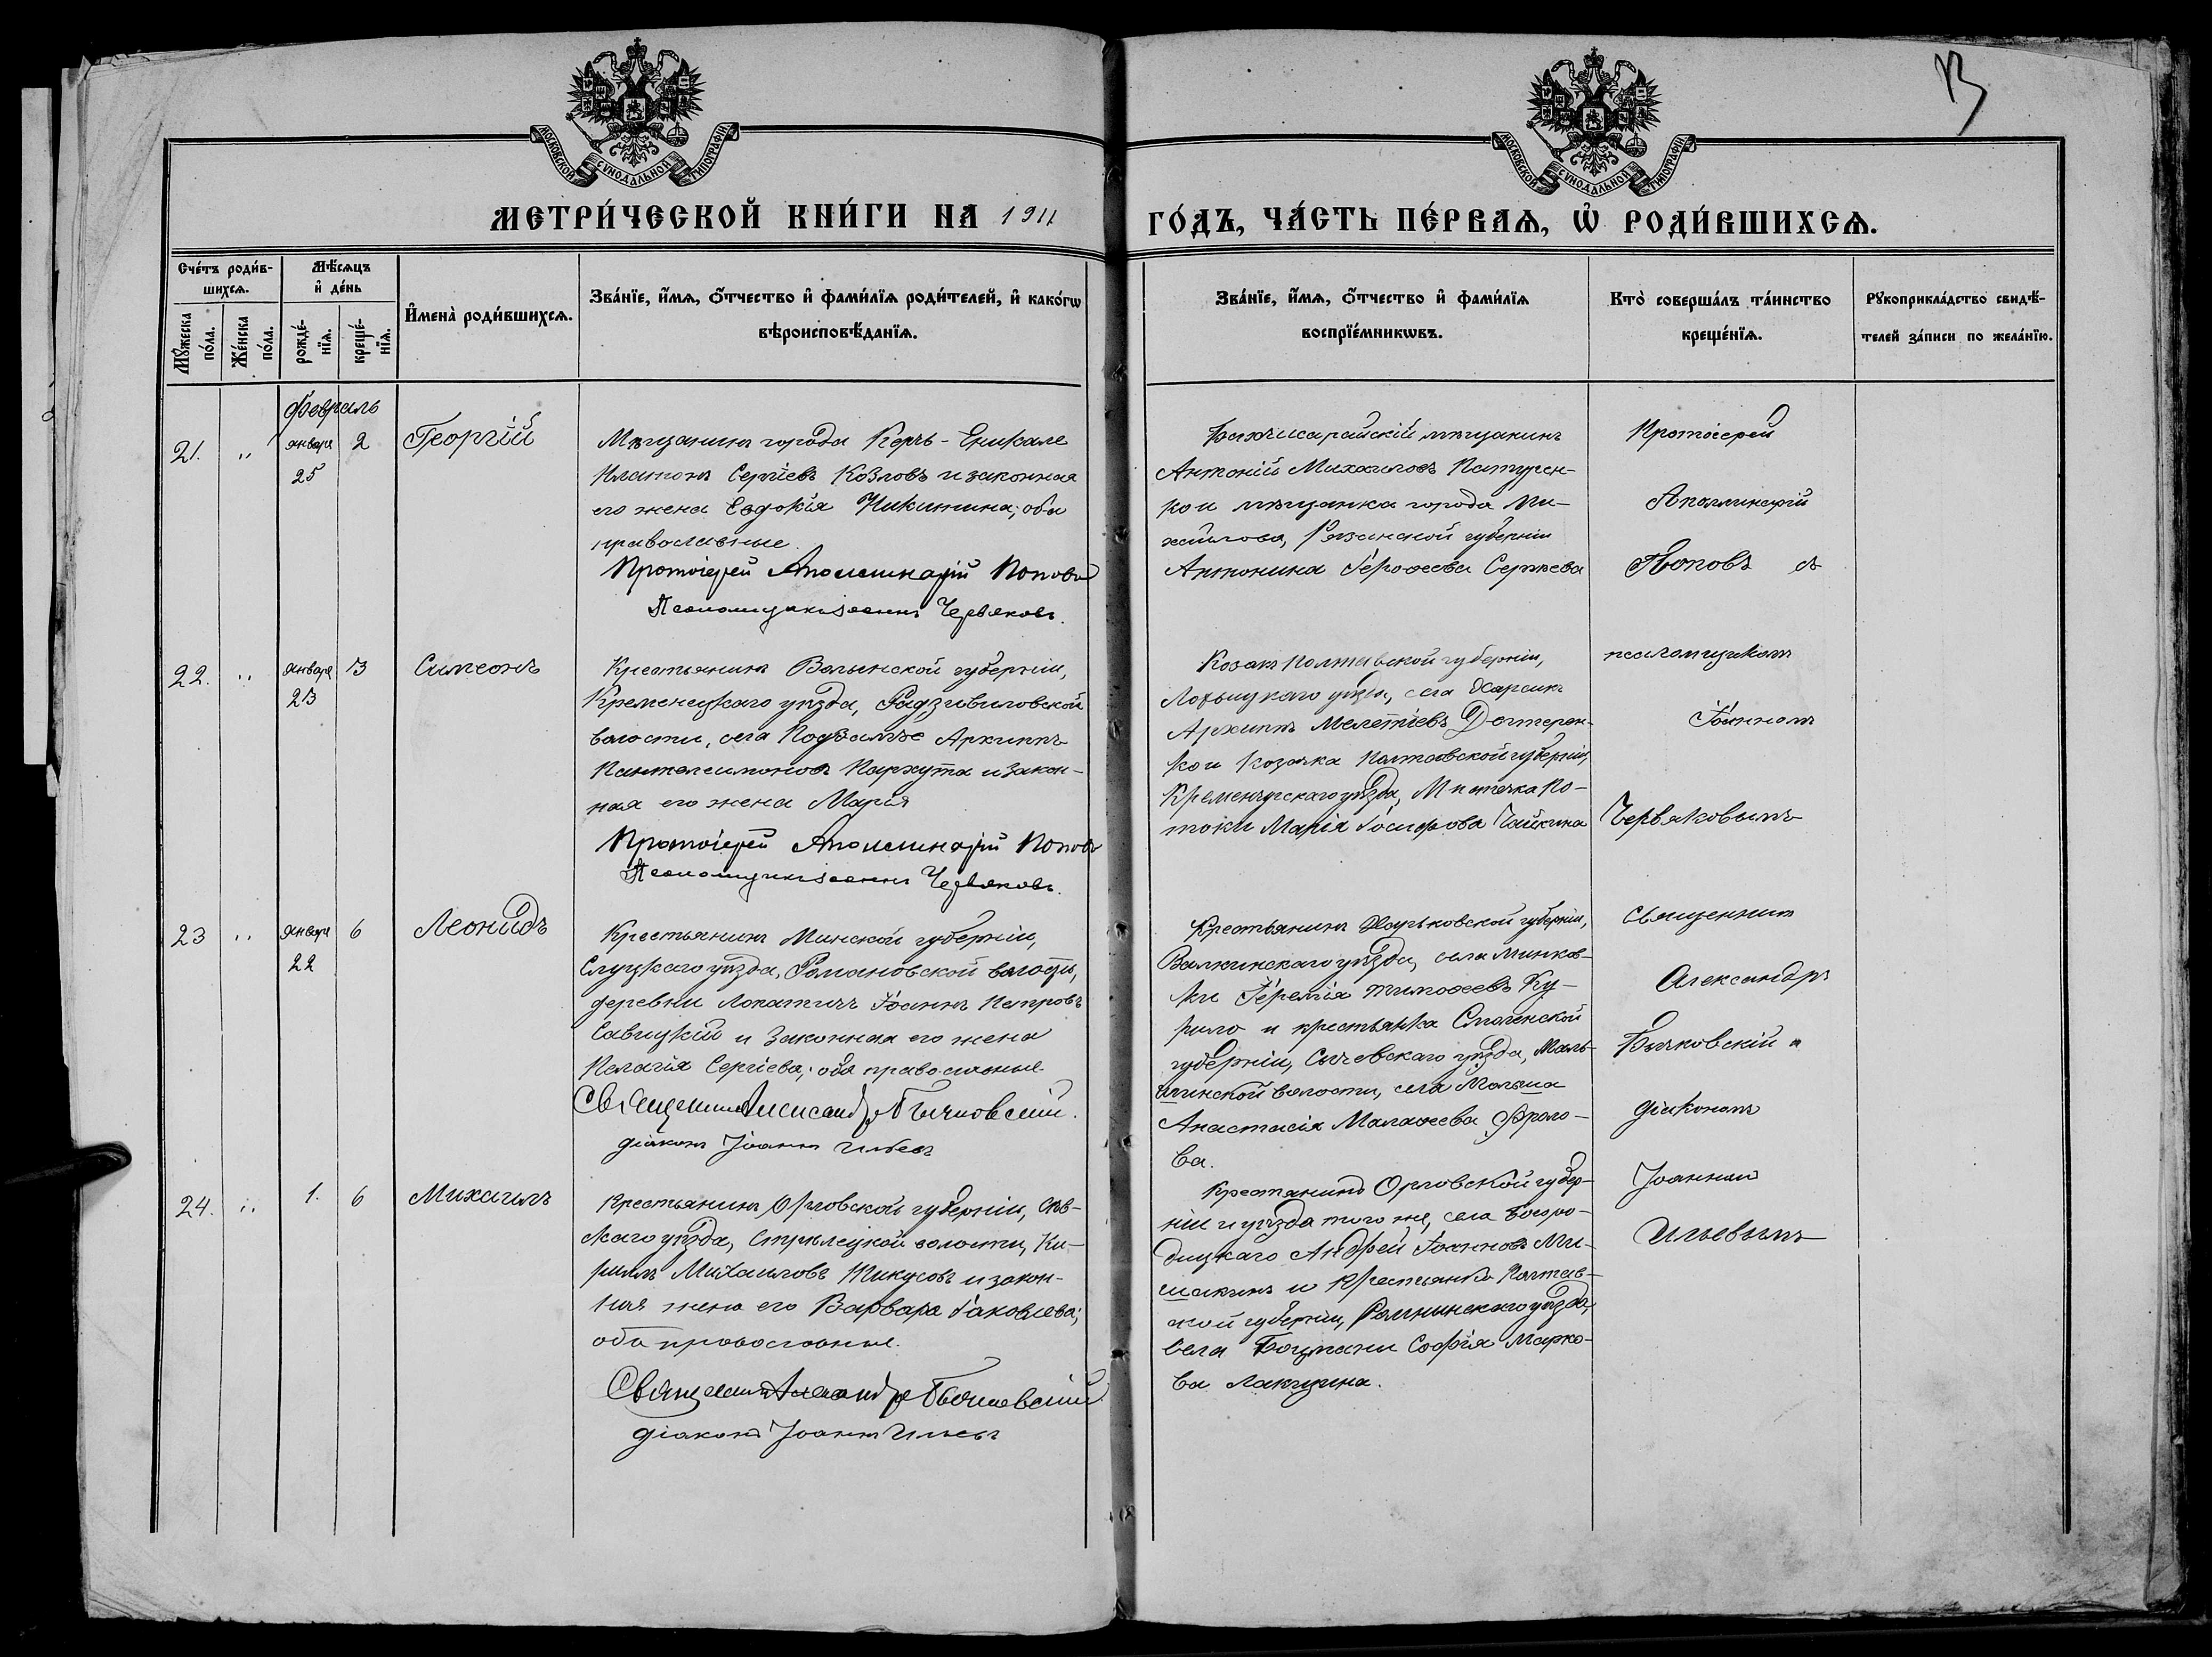 13
МОСКОВСКОЙ СѴНОДАЛЬНОЙ ТИПОГРАФІИ
МОСКОВСКОЙ СѴНОДАЛЬНОЙ ТИПОГРАФІИ
МЕТРИ́ЧЕСКОЙ КНИ́ГИ НА 1911
ГО́ДЪ, ЧА́СТЬ ПЕ́РВАѦ, Ѡ҆ РОДИ́ВШИХСѦ.
Сче́тъ роди́в-
шихсѧ.
Мꙋ́жеска
по́ла.
Же́нска
по́ла.
Мѣ́сѧцъ
и҆ де́нь
рожде́-
нїѧ.
креще́-
нїѧ.
И҆мена̀ роди́вшихсѧ.
Зва́нїе, и҆́мѧ, ѻ҆́тчество и҆ фами́лїѧ роди́телей, и҆ како́гѡ
вѣроисповѣ́данїѧ.
Зва́нїе, и҆́мѧ, ѻ҆́тчество и҆ фами́лїѧ
воспрїе́мникѡвъ.
Кто̀ соверша́лъ та́инство
креще́нїѧ.
Рꙋкоприкла́дство свидѣ́-
телей за́писи по жела́нїю.
Февраль
21.
"
января
25
2
Георгій
Мѣщанинъ города Керчь-Еникале
Платонъ Сергіевъ Козловъ и законная
его жена Евдокія Никитина; оба
православные.
Протоіерей Аполлинарій Поповъ
Псаломщикъ Іоаннъ Червяковъ.
Бахчисарайскій мѣщанинъ
Антоній Михаиловъ Патурен-
ко и мѣщанка города Ми-
хайлова, Рязанской губерніи
Антонина Іерофеева Сержева
Протоіерей
Аполлинарій
Поповъ съ
22.
"
января
23
3
Симеонъ
Крестьянинъ Волынской губерніи,
Кременецкаго уѣзда, Радзивиловской
волости, села Подзамче Архиппъ
Пантелеимоновъ Пархута и закон-
ная его жена Марія
Протоіерей Аполлинарій Поповъ
Псаломщикъ Іоаннъ Червяковъ.
Козакъ Полтавской губерніи,
Лохвицкаго уѣзда, села Харсикъ
Архиппъ Мелетіевъ Дегтерен-
ко и козачка Полтавской губерніи,
Кременчугскаго уѣзда, Мѣстечка По-
токи Марія Іосифова Чайкина
псаломщикомъ
Іоанномъ
Червяковымъ
23
"
января
22
6
Леонидъ
Крестьянинъ Минской губерніи,
Слуцкаго уѣзда, Романовской волости,
деревни Лопатичъ Іоаннъ Петровъ
Савицкій и законная его жена
Пелагія Сергіева; оба православные
Священникъ Александръ Бычковскій.
діаконъ Іоаннъ Ильевъ
Крестьянинъ Харьковской губерніи,
Валкинскаго уѣзда, села Минков-
ки Іеремія Тимофеевъ Ку-
рило и крестьянка Смоленской
губерніи, Сычевскаго уѣзда, Маль-
шинской волости, села Мальша
Анастасія Малафеева Фроло-
ва.
Священникъ
Александръ
Бычковскій и
діакономъ
24.
"
1.
6
Михаилъ
Крестьянинъ Орловской губерніи, Сѣв-
скаго уѣзда, Стрѣлецкой волости, Ки-
риллъ Михаиловъ Тикусовъ и закон-
ная жена его Варвара Іаковлева;
оба православные.
Священникъ Александръ Бычковскій
діаконъ Іоаннъ Ильевъ
Крестянинъ Орловской губер-
ніи и уѣзда того же, села Богоро-
дицкаго Андрей Іоанновъ Ми-
шакинъ и крестьянка Полтав-
ской губерніи, Роменскаго уѣзда,
села Боцмани Софія Марко-
ва Лакизина.
Іоанномъ
Ильевымъ